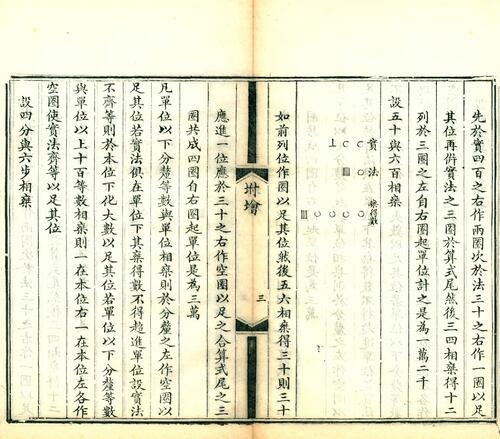 先於實四百之右作兩圈次於法三十之右作一圈以足
其位再併實法之三圈於算式尾然後三四相乘得十二
列於三圈之左自右圈起單位計之是為一萬二千
設五十與六百相乘
實 〇〇
法 〇
乘得數 〇〇〇
如前列位作圈以足其位然後五六相乘得三十則三十
坿增
三
應進一位應於三十之右作空圈以足之合算式尾之三
圈共成四圈自右圈起單位是為三萬
凡單位以下分釐等數與單位相乘則於分釐之左作空圈以
足其位若實法俱在單位下其乘得數不得越進單位設實法
不齊等則於本位下化大數以足其位若單位以下分釐等數
與單位以上十百等數相乘則一在本位右一在本位左各作
空圈使實法齊等以足其位
設四分與六步相乘